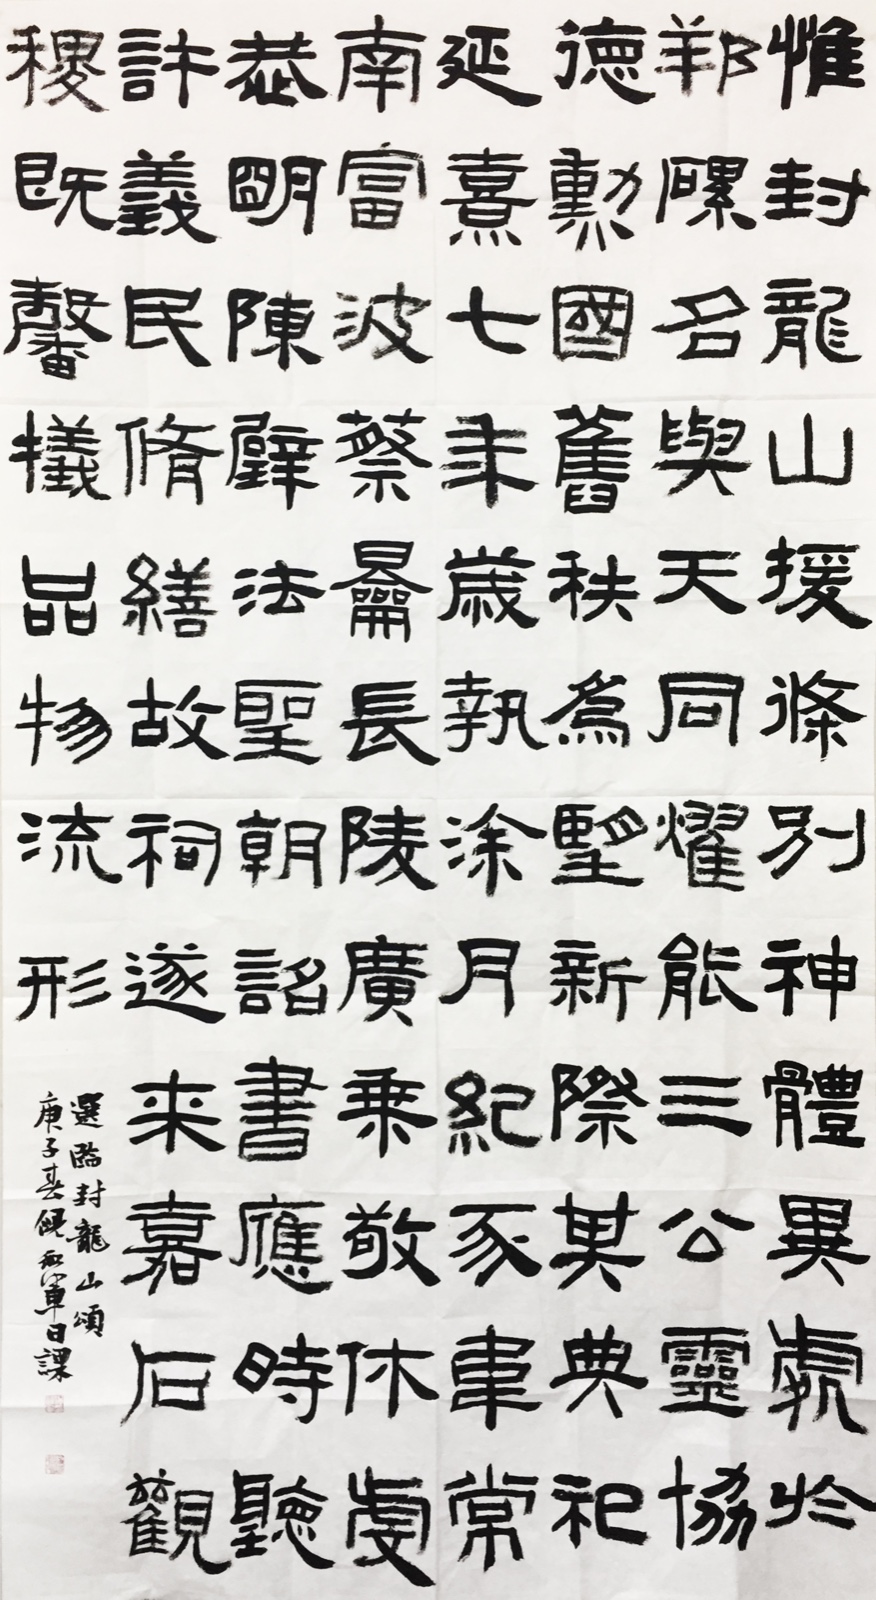 惟封龍山援條別神體異處於
邦磥名與天同燿能三公靈協
德勳國舊秩為望新際其典祀
延熹七年歲執涂月紀豕韋常
南富波蔡龠長陵廣乘敬休虔
恭明陳璧法聖朝詔書應時聽
許義民脩繕故祠遂来嘉石觀
稷既馨犧品物流形
選臨封龍山頌
庚子春倪和軍日課